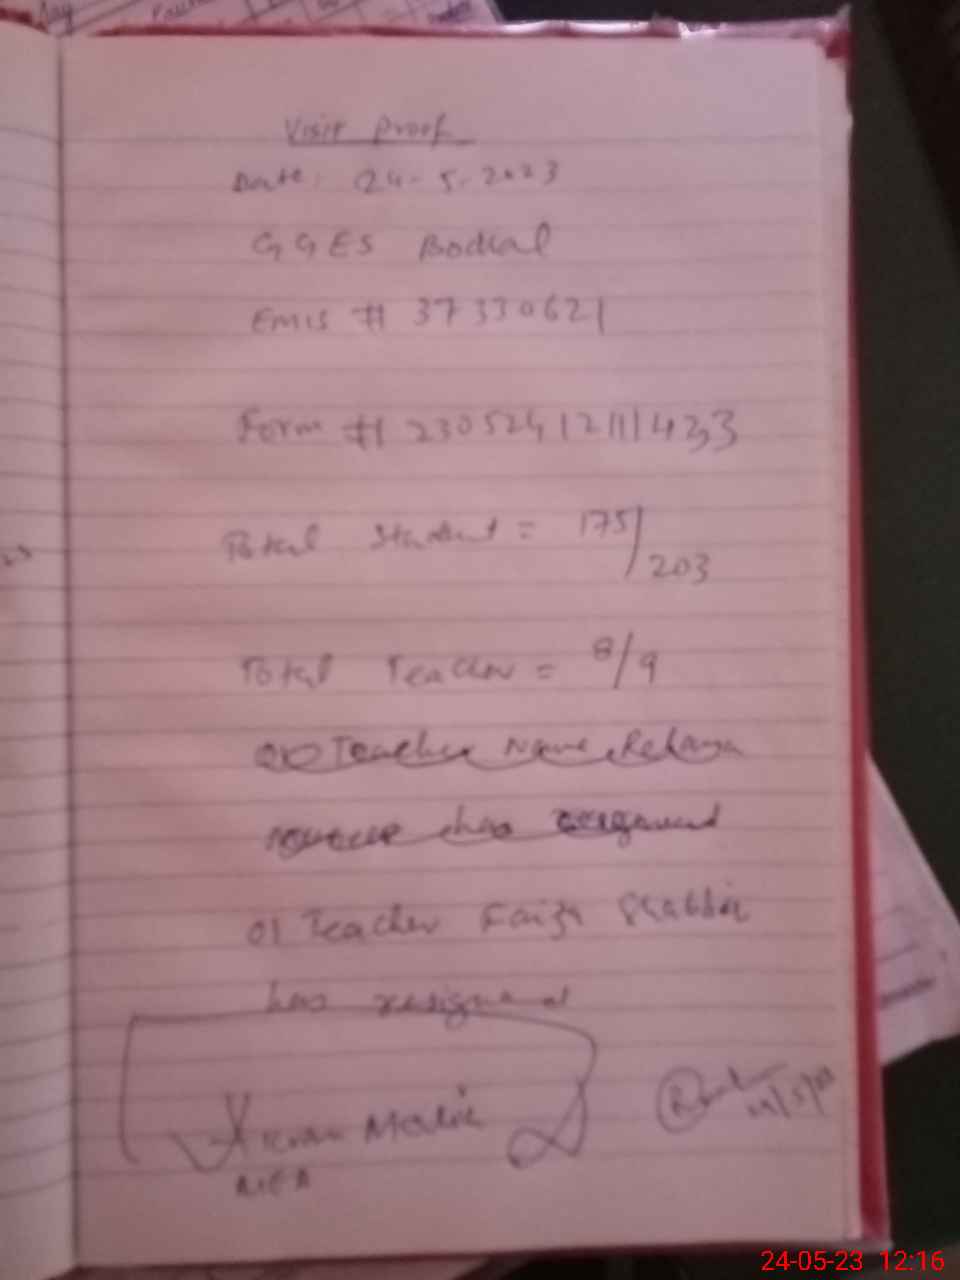 Visit Proof
Date: 24-5-2023
GGES Bodial
Emis # 37330621
Form # 23052412111433
Total Student = 175/203
Total Teacher = 8/9
Teacher Name Rehana
has resigned
01 Teacher Faiza Shabbir
has resigned
Kiran Malik
MEA
24-05-23 12:16